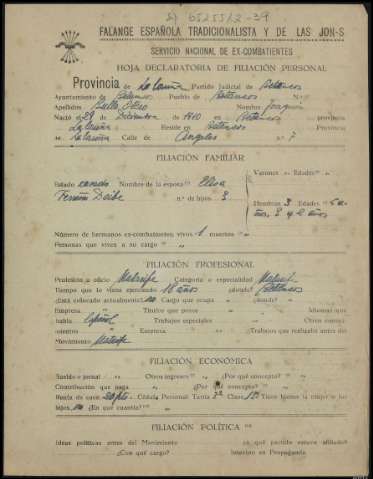 FALANGE ESPAÑOLA TRADICIONALISTA Y DE LAS JON-S
SERVICIO NACIONAL DE EX-COMBATIENTES
HOJA DECLARATORIA DE FILIACIÓN PERSONAL
Provincia de La Coruña Partido Judicial de Betanzos
Ayuntamiento de Betanzos Pueblo de Betanzos N.º
Apellidos Nombre Joaquín
Nació el 29 de Diciembre de 1910 en Betanzos provincia
La Coruña Reside en Betanzos Provincia
de La Coruña Calle de Angeles n.º 7
FILIACIÓN FAMILIAR
Varones " Edades "
Estado casado Nombre de la esposa Elisa
Fermín Deibe n.º de hijos 3
Hembras 3 Edades 5 a
años, 3 y 2 años
Número de hermanos ex-combatientes: vivos 1 muertos "
Personas que viven a su cargo "
FILIACIÓN PROFESIONAL
Profesión u oficio Matarife Categoría o especialidad Matarife
Tiempo que lo viene ejerciendo 18 años ¿dónde? Betanzos
¿Está colocado actualmente? no Cargo que ocupa " ¿dónde? "
Empresa " Títulos que posee " Idiomas que
habla Español Trabajos especiales " Conoci-
mientos " Escritura " ¿Trabajos que realizaba antes del
Movimiento Matarife
FILIACIÓN ECONÓMICA
Sueldo o jornal " Otros ingresos " ¿Por qué concepto? "
Contribución que paga " ¿Por qué concepto? "
Renta de casa 20 pts. Cédula Personal Tarifa 2ª Clase Tiene bienes la mujer o los
hijos no ¿En qué cuantía? "
FILIACIÓN POLÍTICA
Ideas políticas antes del Movimiento " ¿a qué partido estuvo afiliado?
¿Con qué cargo? Intervino en Propaganda